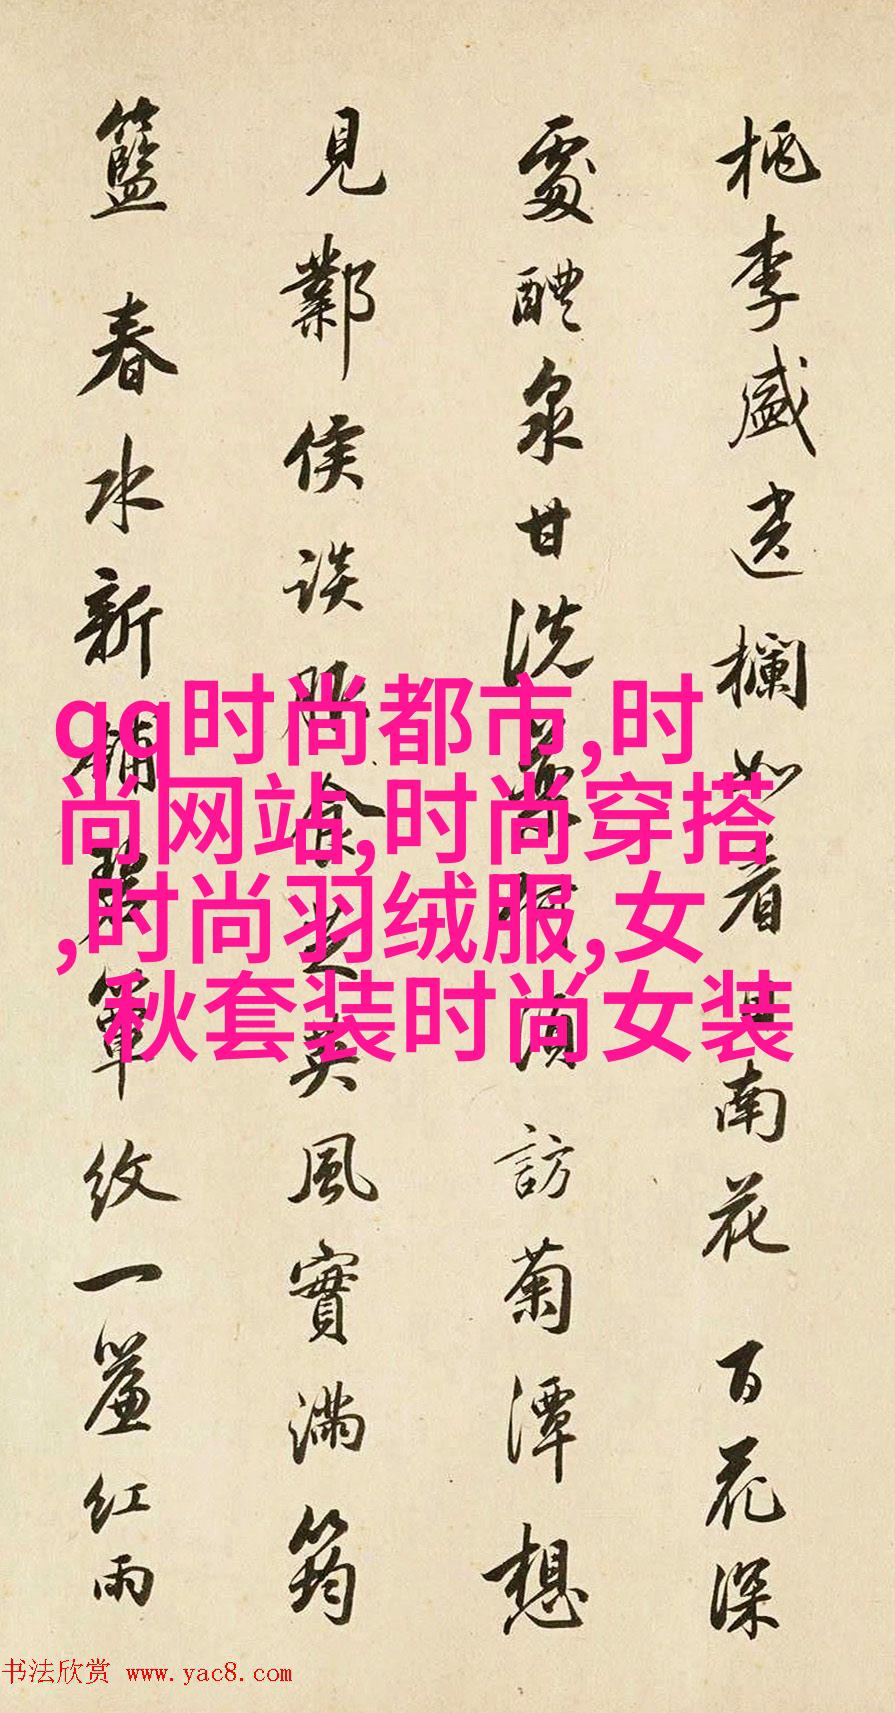 桃李盛欄如看南花 百花深
處醴泉甘洗尊何須訪菊潭想
見鄴侯談英風實滿筠
籃 春水新鋪碧簟紋一簾紅雨
qq时尚都市,时
尚网站,时尚穿搭
,时尚羽绒服,女
秋套装时尚女装
书法欣赏 www.yac8.com